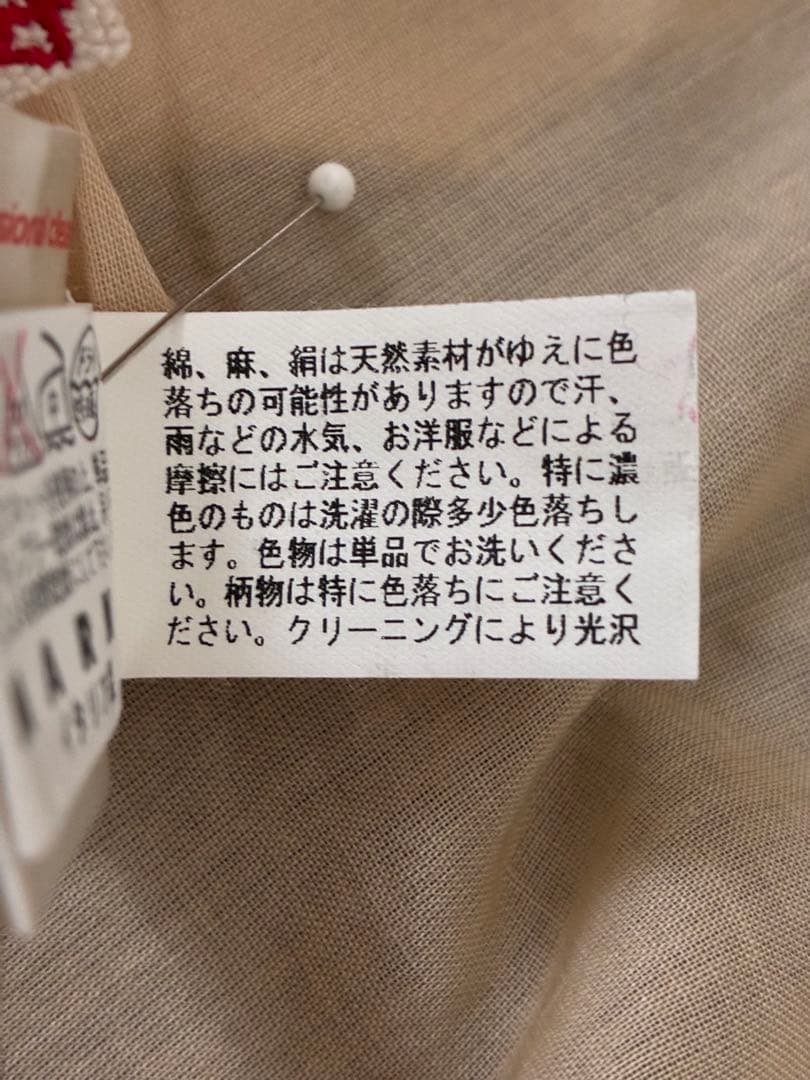 綿、麻、絹は天然素材がゆえに色
落ちの可能性がありますので汗、
雨などの水気、お洋服などによる
摩擦にはご注意ください。特に濃
色のものは洗濯の際多少色落ちし
ます。色物は単品でお洗いくださ
い。柄物は特に色落ちにご注意く
ださい。クリーニングにより光沢